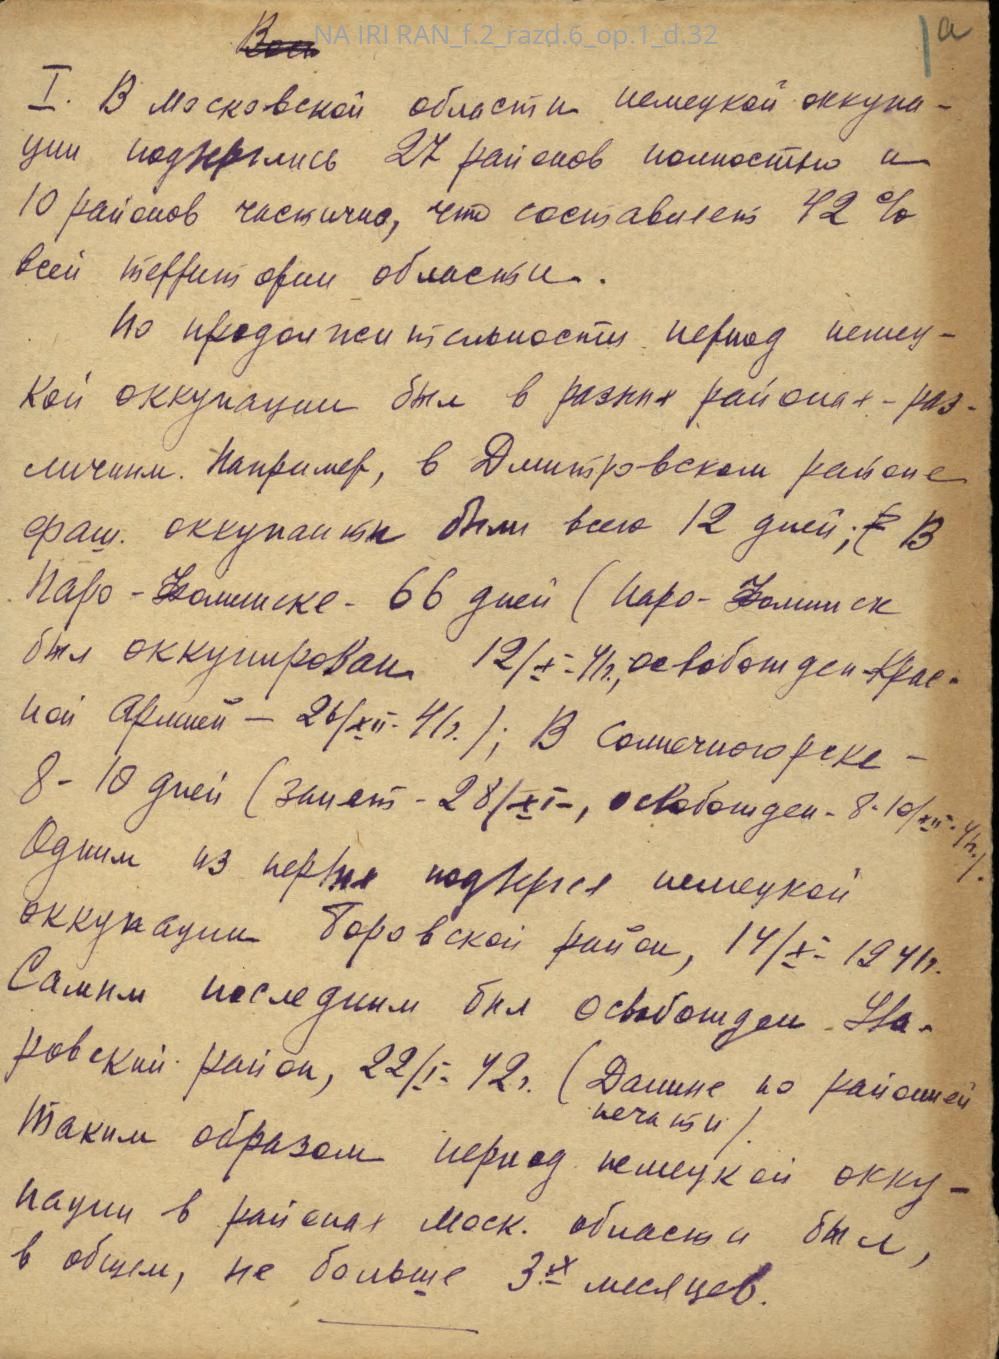 NA IRI RAN_f.2_razd.6_op.1_d.32
а
I. В Московской области немецкой оккупа-
ции подверглись 27 районов полностью и
10 районов частично, что составляет 42%
всей территории области.
По продолжительности период немец-
кой оккупации был в разных районах - раз-
личным. Например, в Дмитровском районе
фаш. оккупанты были всего 12 дней; В
Наро-Фоминске - 66 дней (Наро-Фоминск
был оккупирован 12/X-41г., освобожден Крас-
ной Армией — 26/XII-41г.); В Солнечногорске -
8-10 дней (занят - 28/XI-, освобожден - 8-10/XII-41г.).
Одним из первых подвергся немецкой
оккупации Боровской район, 14/X- 1941г.
Самым последним был освобожден
район, 22/I-42г. (Данные по районной
печати).
Таким образом период немецкой окку-
пации в районах Моск. области был,
в общем, не больше 3-х месяцев.